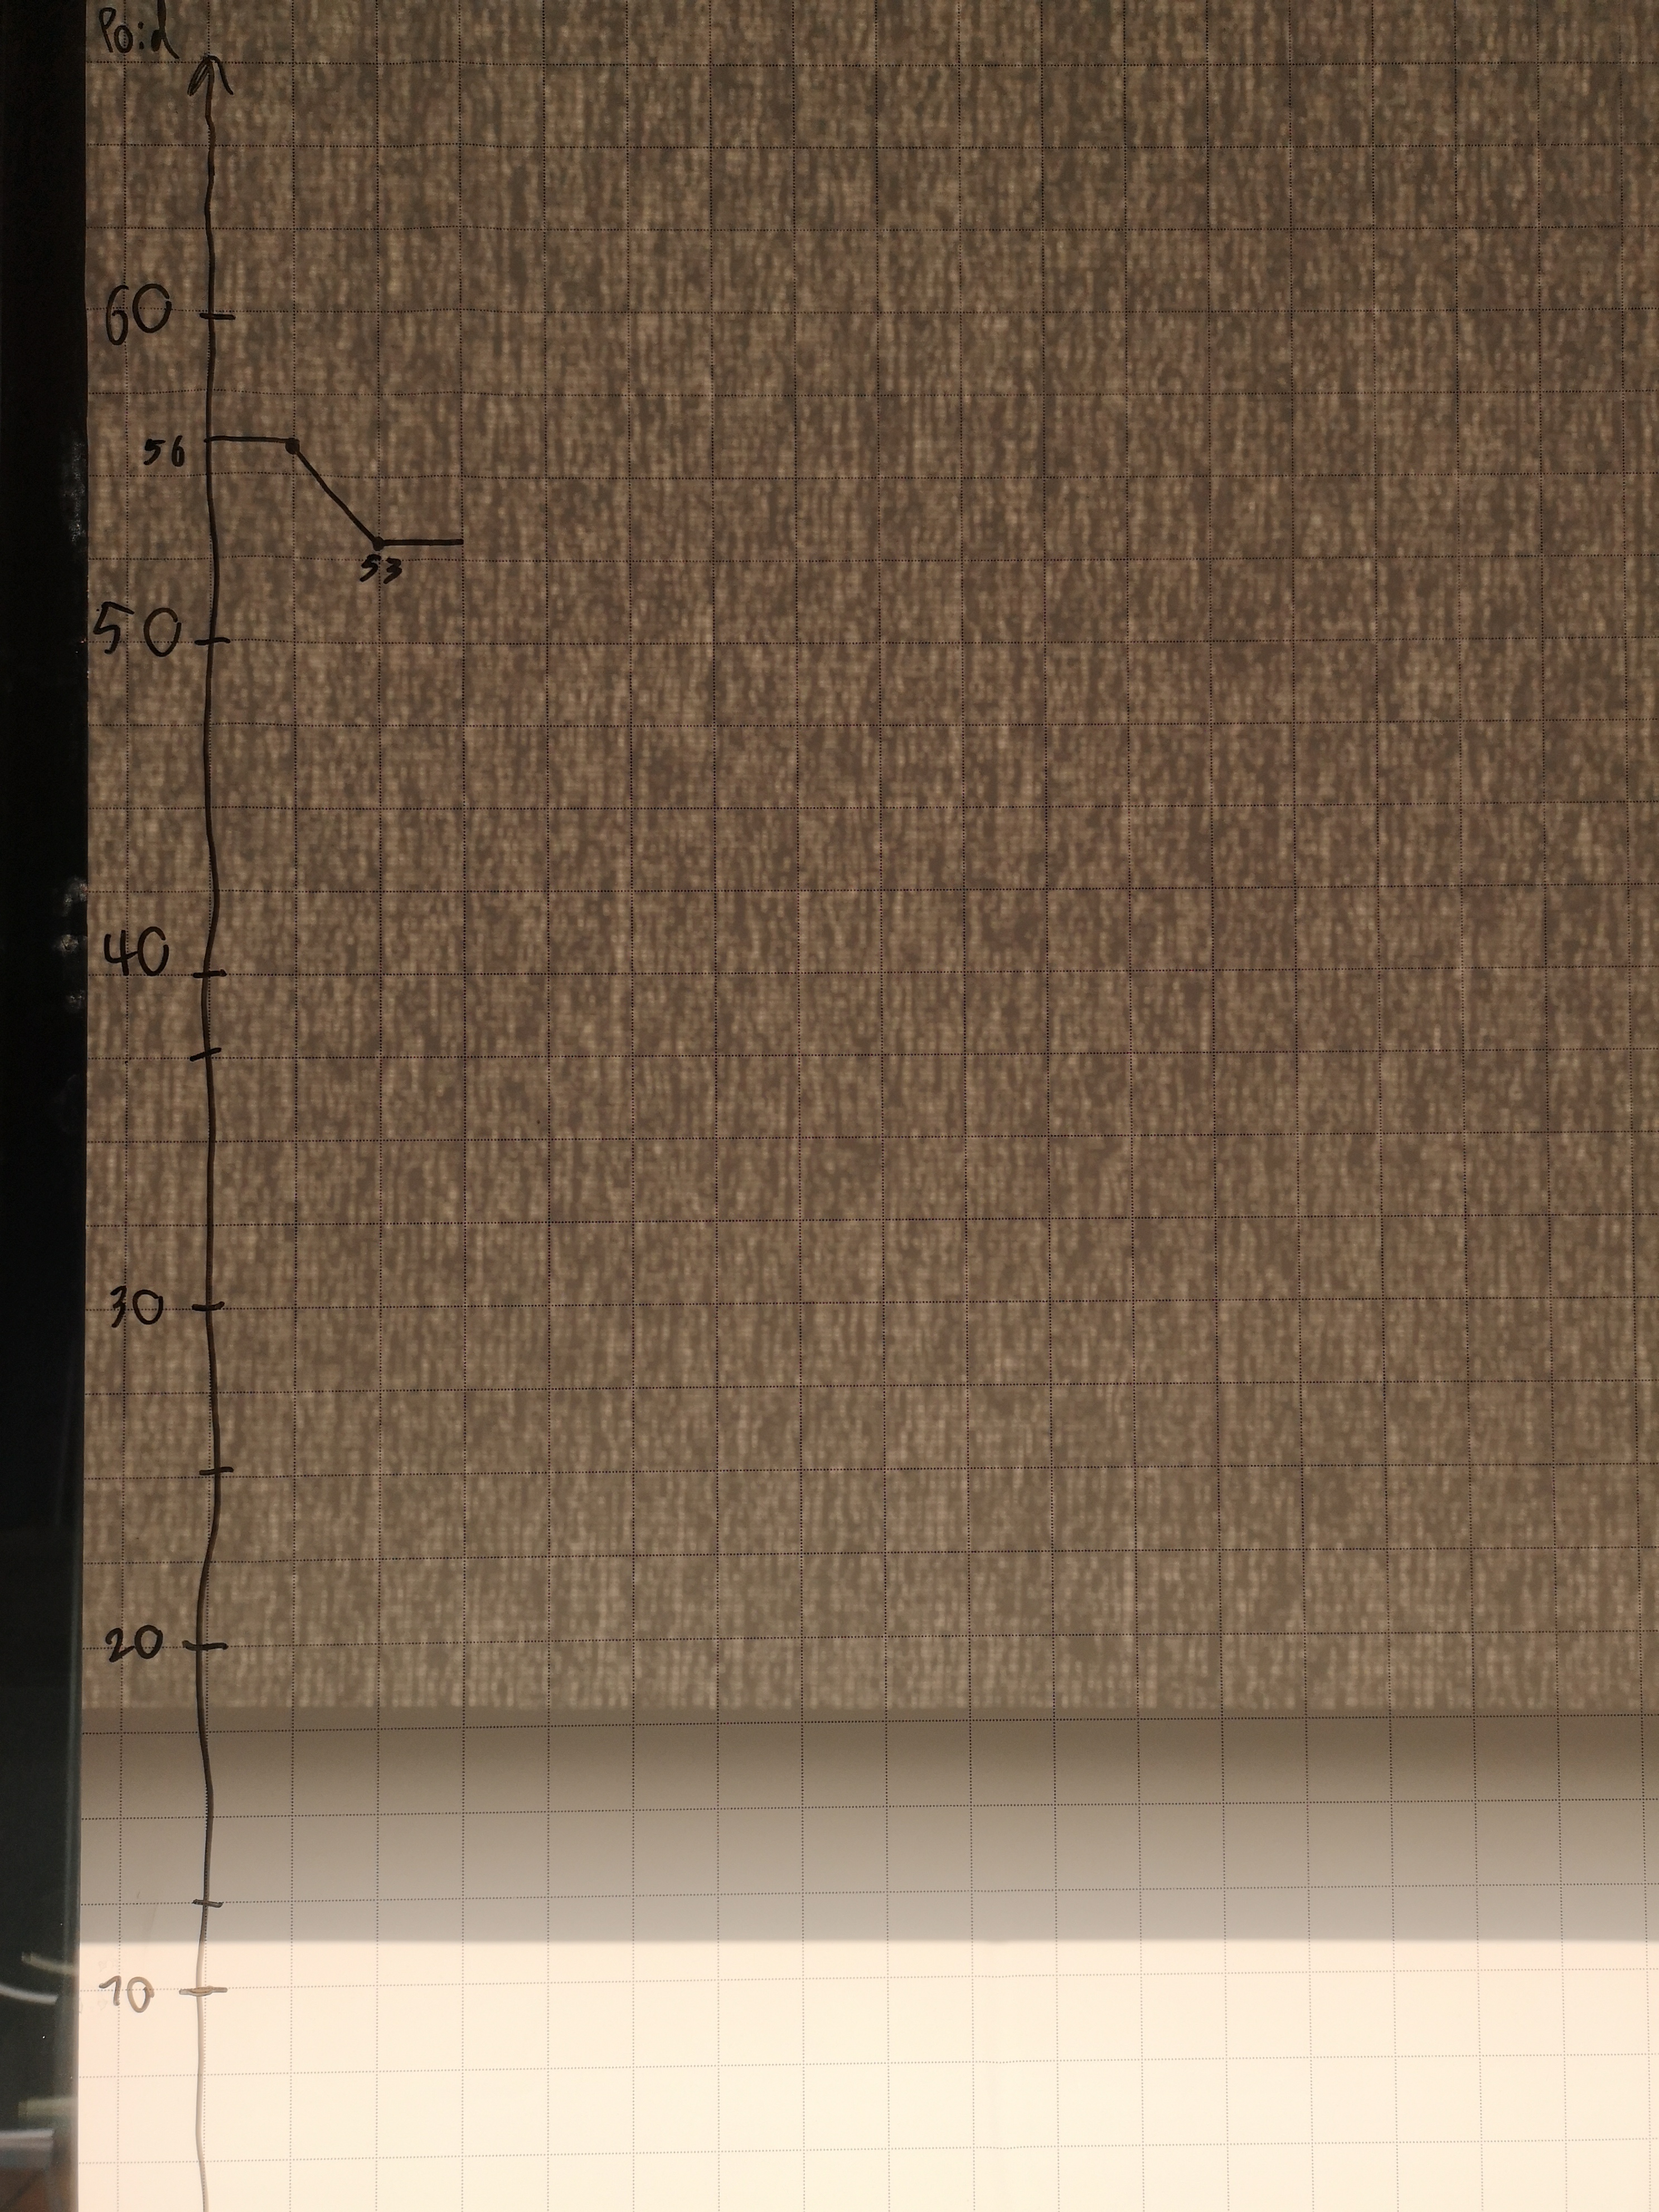 Poid
60
56
53
50
40
30
20
10